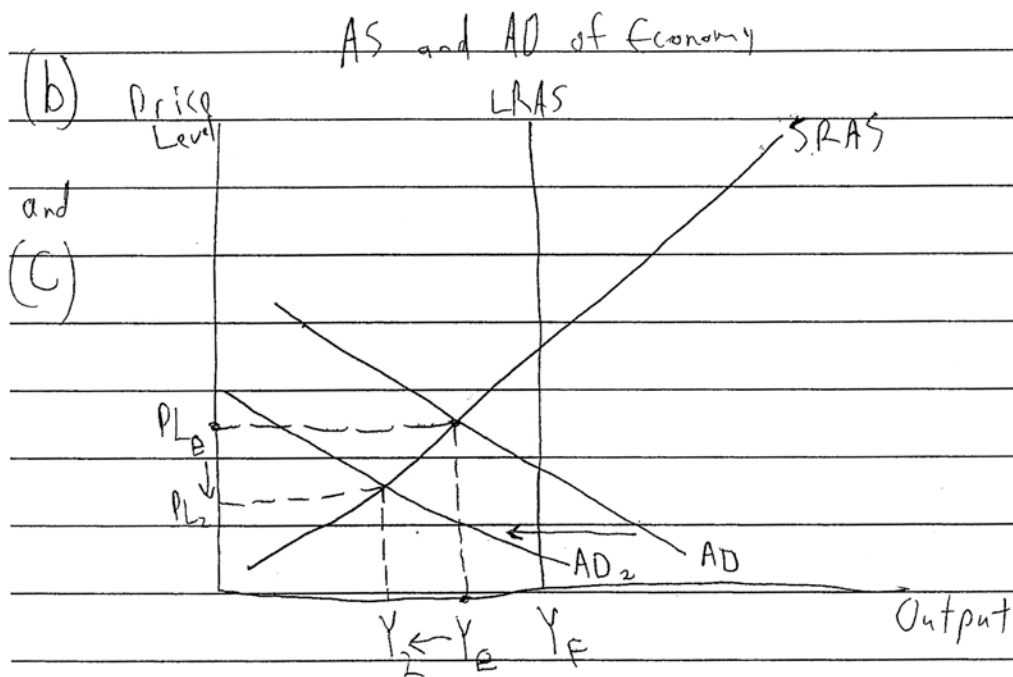 AS and AD of Economy
(b)
and
(C)
Price
Level
LRAS
SRAS
PLe
PL2
AD2
AD
Y2
Ye
YF
Output